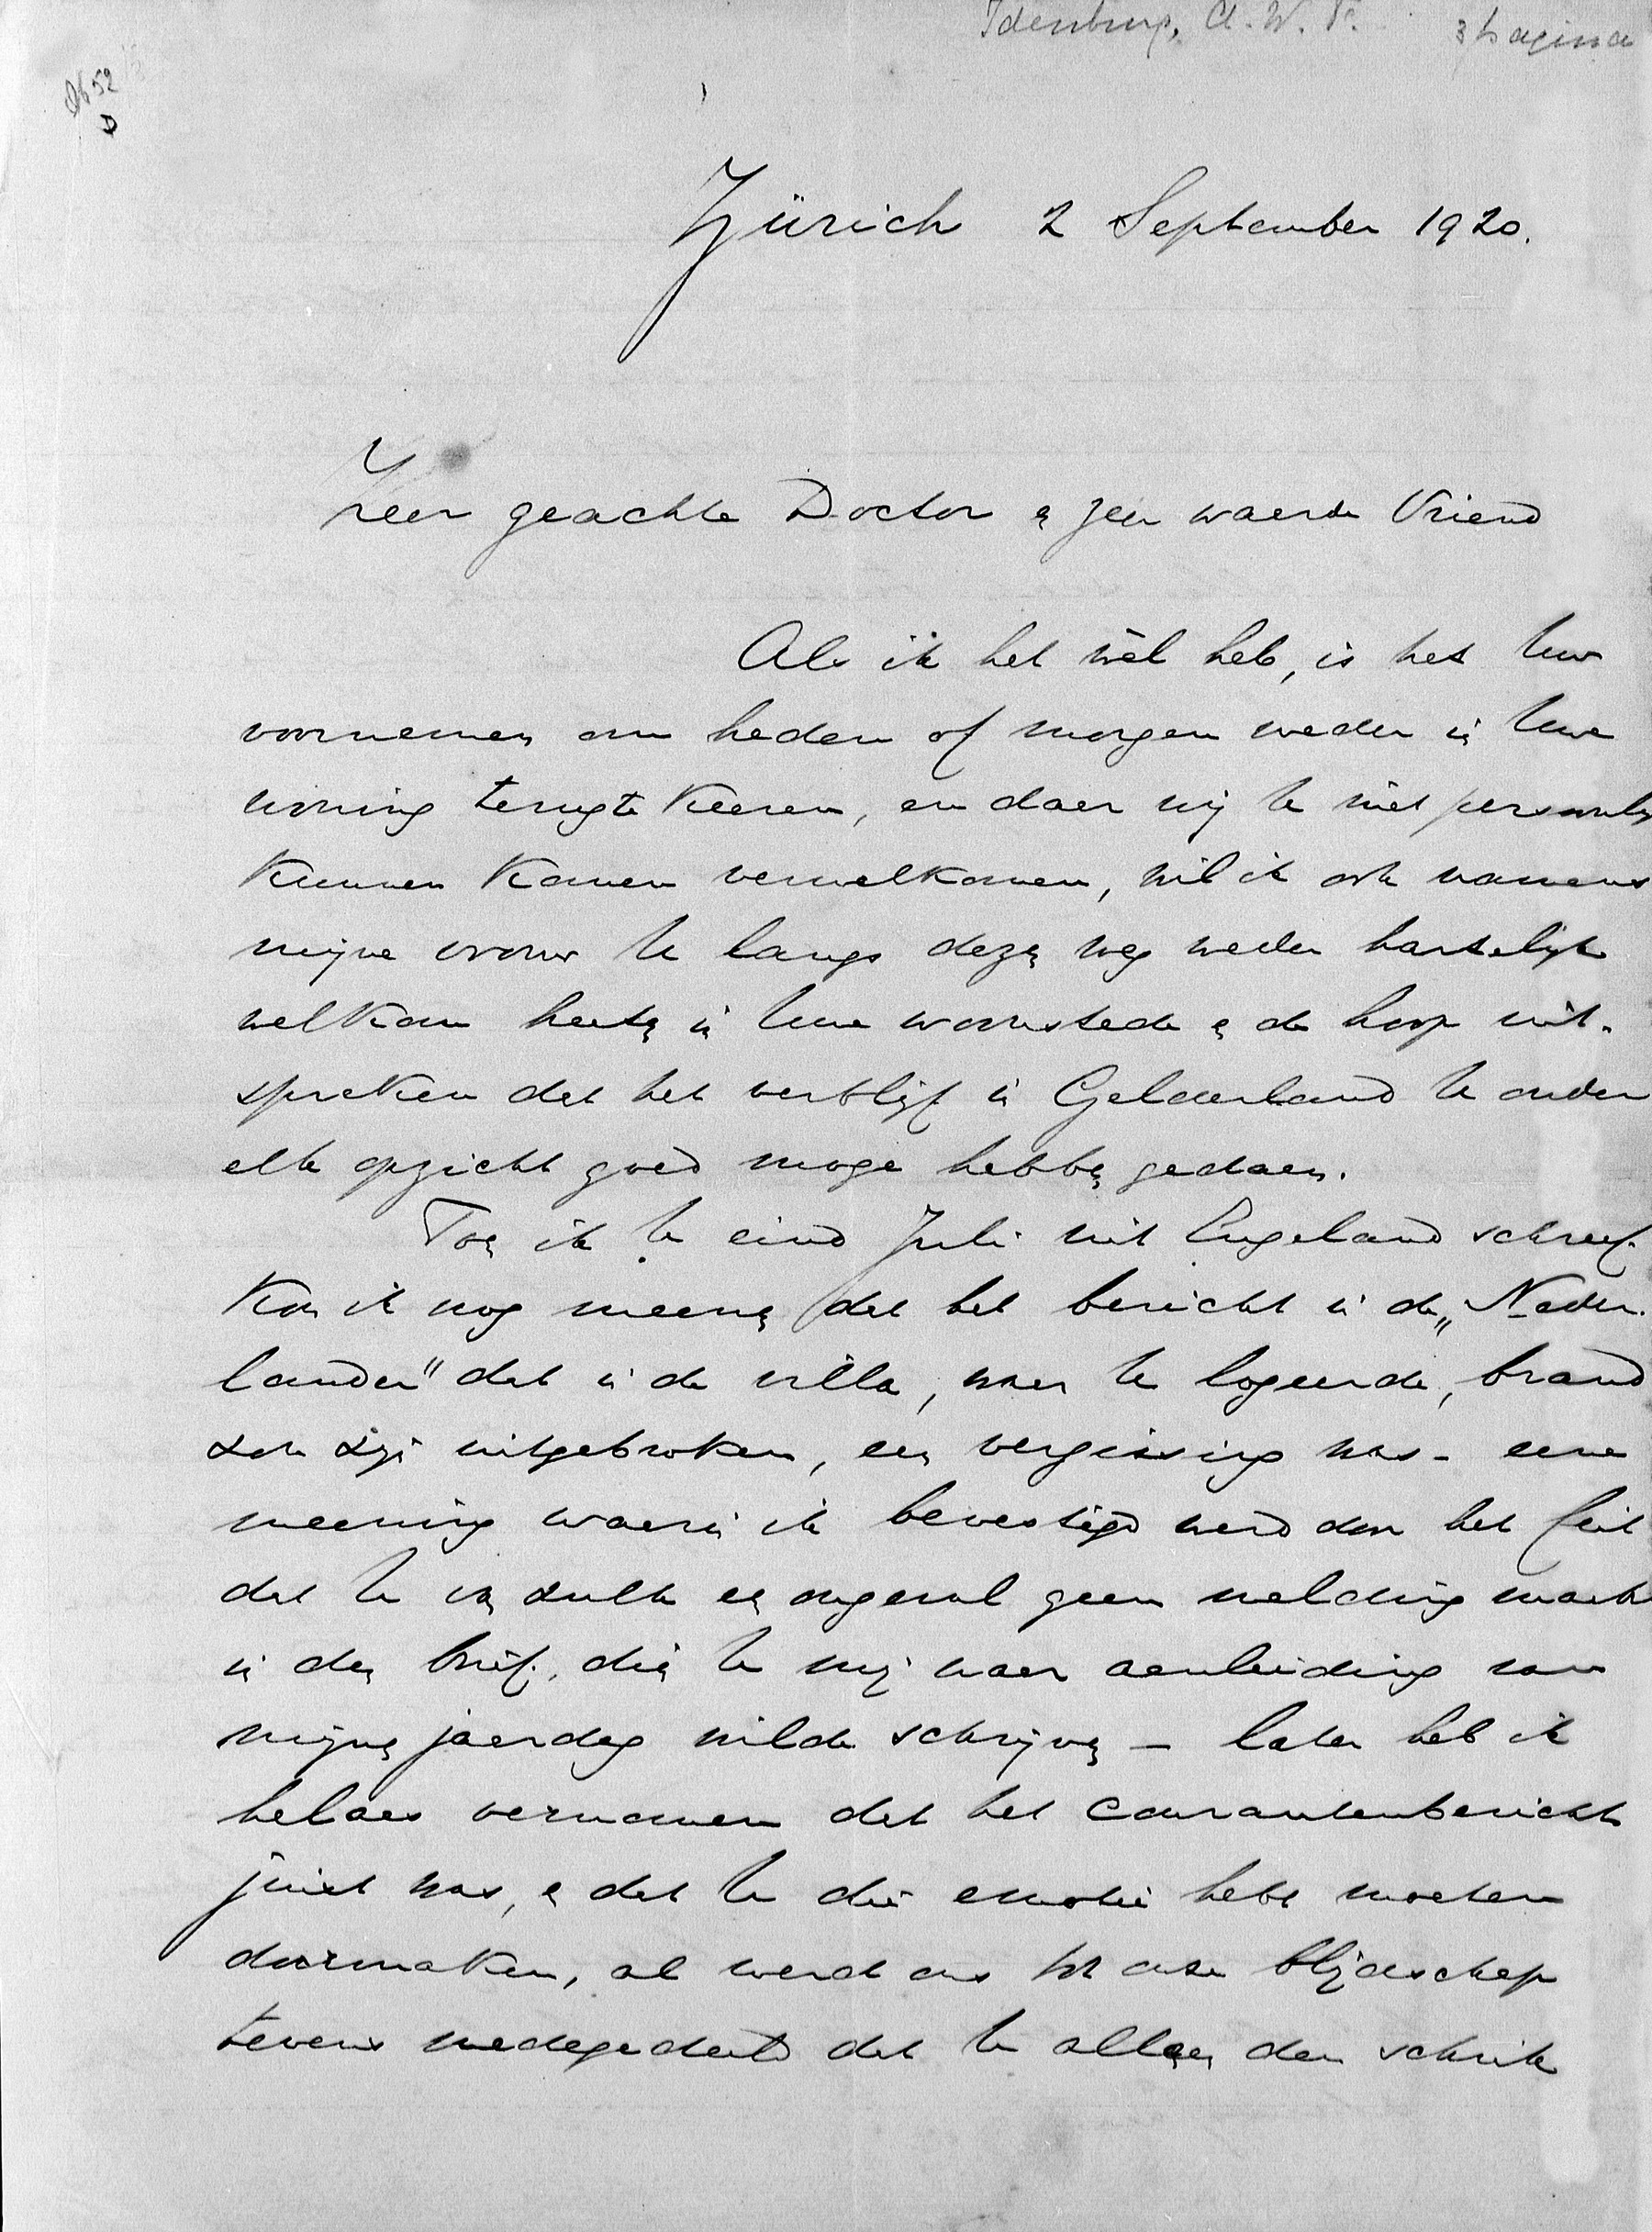 Idenburg, A. W. F. 3 pagina
Zürich 2 September 1920.
Zeer geachte Doctor en zeer waarde Vriend
Als ik het wèl heb, is het Uw
voornemen om heden of morgen weder in Uwe
woning terug te keeren, en daar wij U niet persoonlijk
kunnen komen verwelkomen, wil ik ook namens
mijne vrouw U langs dezen weg weder hartelijk
welkom heeten in Uwe woonstede en de hoop uit-
spreken dat het verblijf in Gelderland U onder
elk opzicht goed moge hebben gedaan.
Toen ik U eind Juli uit Engeland schreef
kon ik nog meenen dat het bericht in de „Neder-
lander" dat in de villa, waar U logeerde, brand
zou zijn uitgebroken, een vergissing was - eene
meening waarin ik bevestigd werd door het feit
dat U van zulk een ongeval geen melding maakte
in den brief, dien U mij naar aanleiding van
mijnen jaardag wilde schrijven — later heb ik
helaas vernomen dat het courantenbericht
juist was, en dat U die emotie hebt moeten
doormaken, al werd ons tot onze blijdschap
tevens medegedeeld dat U alleen den schrik